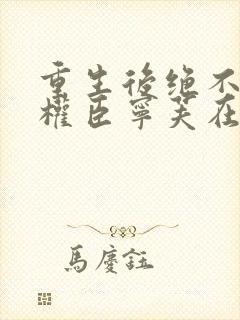 重生後绝不
權臣寧芙在
馬慶鈺